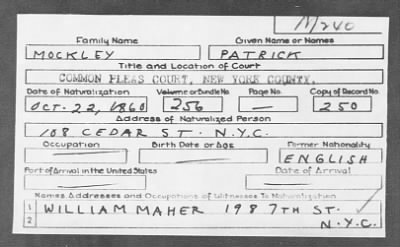 M240
Family Name Given Name or Names
MOCKLEY PATRICK
Title and Location of Court
COMMON PLEAS COURT, NEW YORK COUNTY.
Date of Naturalization Volume or Bundle No Page No Copy of Record No
OCT. 22, 1860 256 — 250
Address of Naturalized Person
108 CEDAR ST. N.Y.C.
Occupation Birth Date or Age Former Nationality
— — ENGLISH
Port of Arrival in the United States Date of Arrival
— —
Names Addresses and Occupations of Witnesses To Naturalization
1 WILLIAM MAHER 198 7TH ST.
2 N.Y.C.